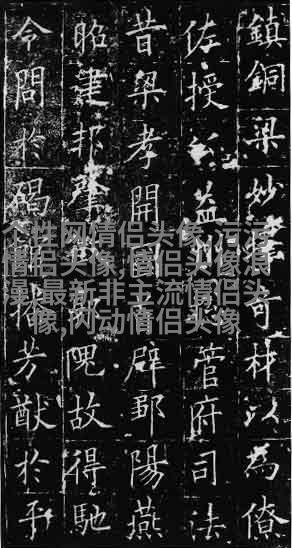 鎮銅梁妙擇奇材以為僚
佐授公益州管府司法
昔梁孝開國首辟鄒陽燕
昭建邦肇徵郭隗故得馳
令問於碣播芳猷於平
个性网情侣头像,污污
情侣头像,情侣头像浪
漫,最新非主流情侣头
像,闪动情侣头像